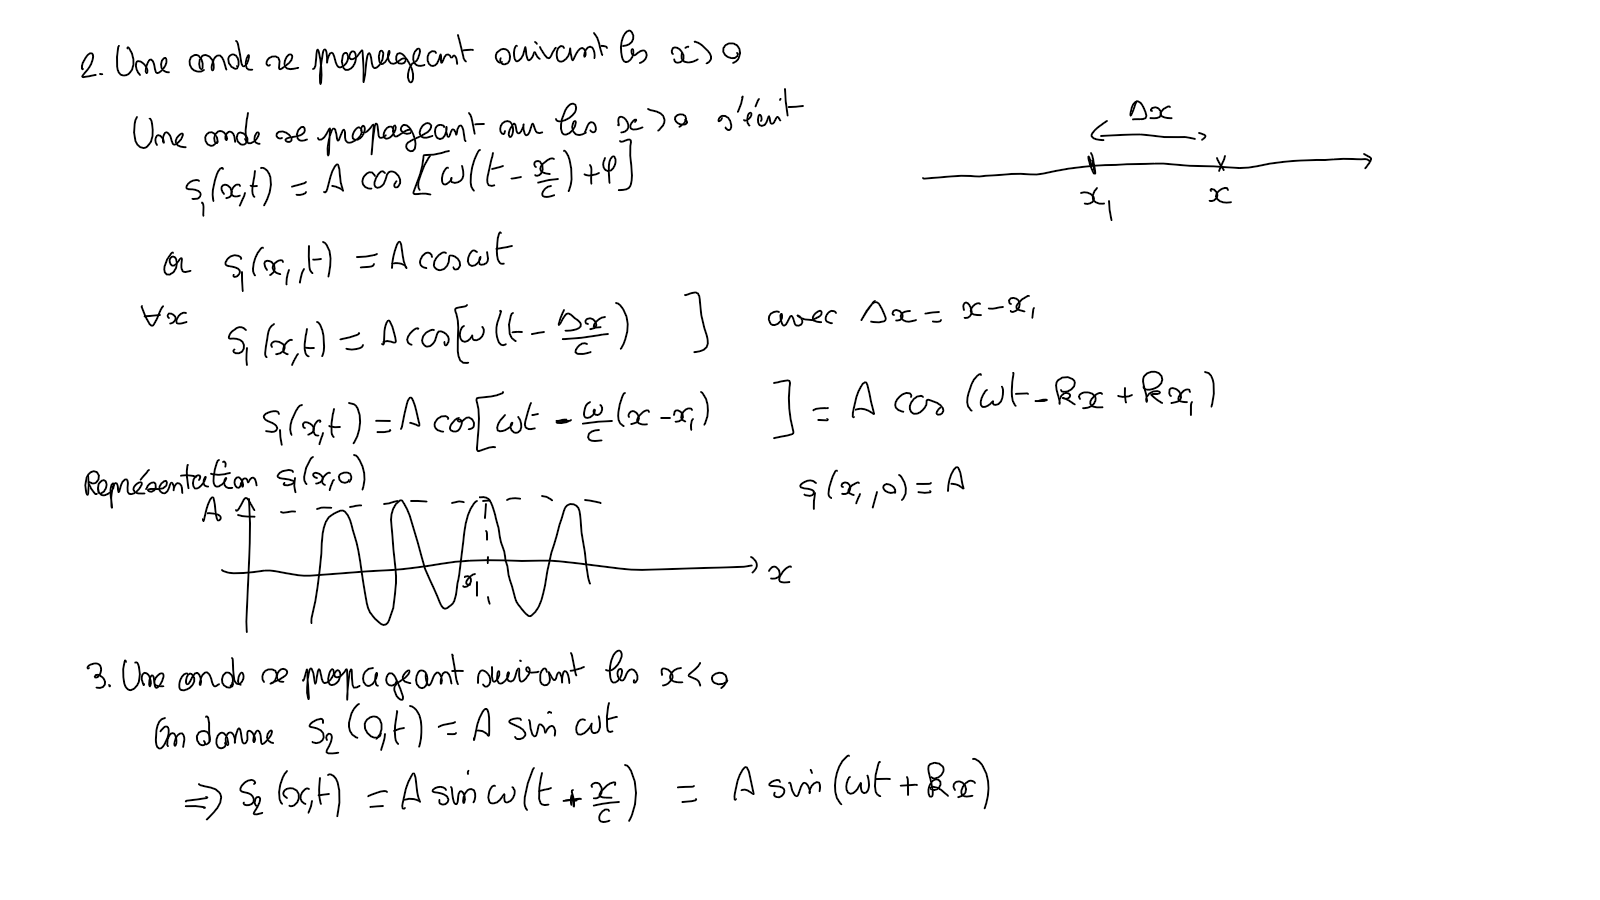 2. Une onde se propageant suivant les x>0
Une onde se propageant sur les x>0 s'écrit
S₁(x,t) = A cos[ω(t - x/c) + φ]
Δx
x₁ x
or S₁(x₁,t) = A cos ωt
∀x S₁(x,t) = A cos[ω(t - Δx/c) ] avec Δx = x - x₁
S₁(x,t) = A cos[ωt - ω/c (x - x₁) ] = A cos (ωt - kx + kx₁)
Représentation S₁(x,0)
S₁(x₁,0) = A
A
x₁
x
3. Une onde se propageant suivant les x<0
On donne S₂(0,t) = A sin ωt
⇒ S₂(x,t) = A sin ω(t + x/c) = A sin(ωt + kx)